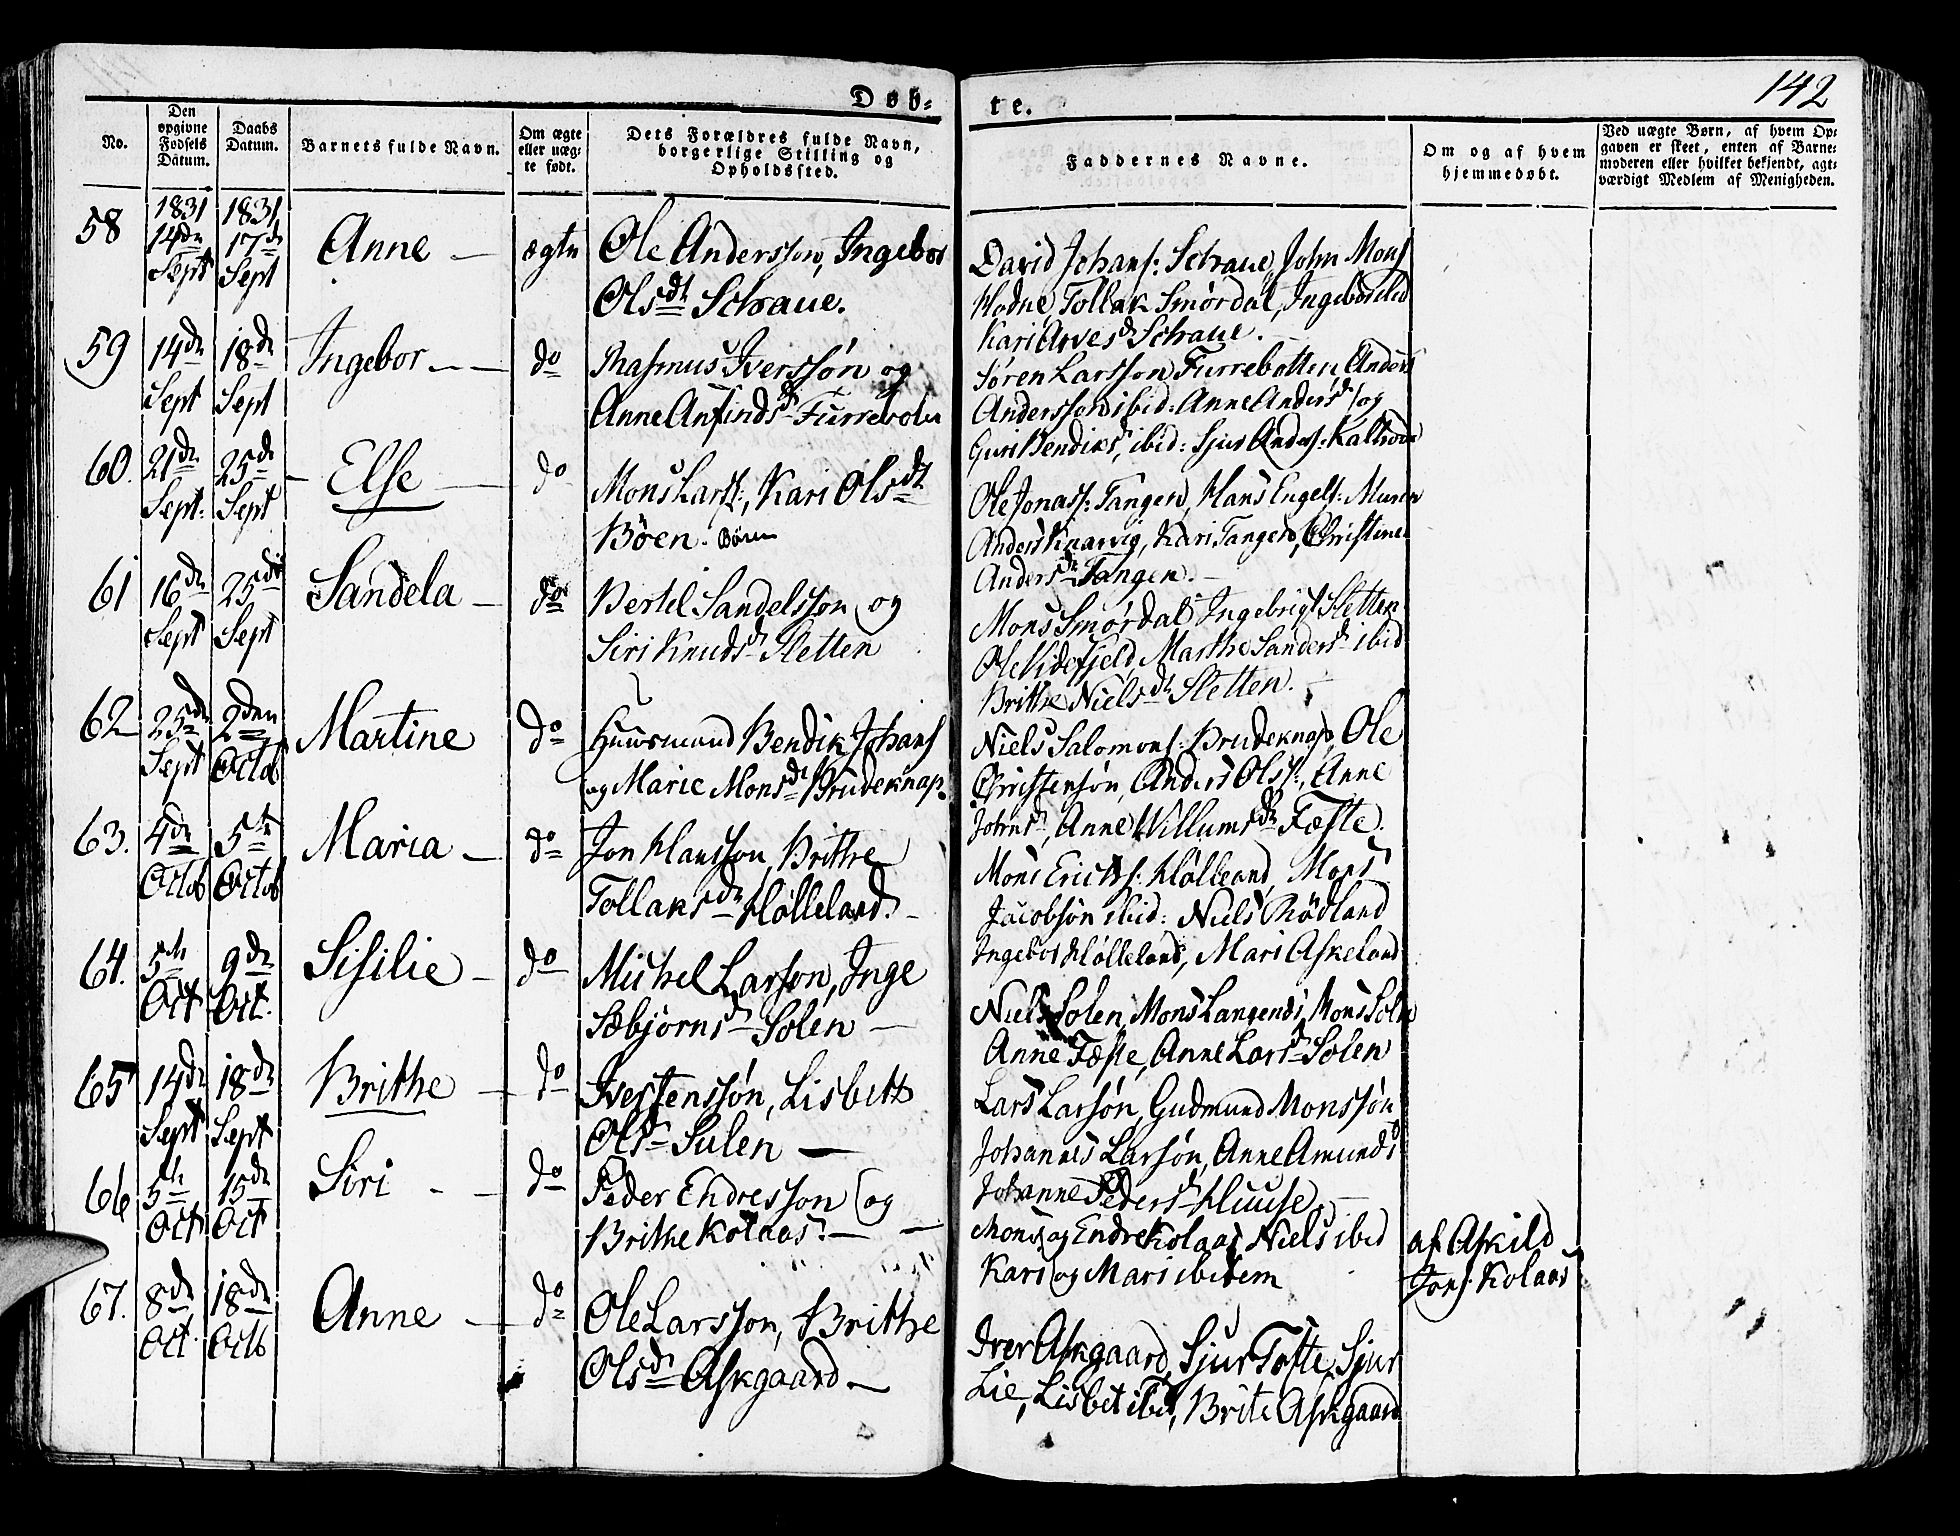 Døb=
te.
142
No.
Den opgivne Fødsels Datum.
Daabs Datum.
Barnets fulde Navn.
Om ægte eller uægte født.
Dets Forældres fulde Navn, borgerlige Stilling og Opholdssted.
Faddernes Navne.
Om og af hvem hjemmedøbt.
Ved uægte Børn, af hvem Opgaven er skeet, enten af Barnemoderen eller hvilket bekjendt, agtværdigt Medlem af Menigheden.
1831 1831
58 14de Sept 17de Sept Anne ægte Ole Andersson, Ingebor
Olsdt Schraue.
David Johans: Schraue, John Mons
Hodne, Tollak Smørdal, Ingebor ibid
Kari Arvesd Schraue.
59 14de Sept 18de Sept Ingebor do Rasmus Iverssøn og
Anne Anfindsd Furrebotn
Søren Larsson Furrebotten, Anders
Andersson ibid: Anne Andersd og
Guri Bendiksd, ibid: Sjur Anders:
60. 21de Sept. 25de Sept Else do Mons Larss:, Kari Olsdt
Böen. Böen
Ole Jonass: Tangen, Hans Engels: Muren
Anders Knarvig, Kari Tangen, Christine
Andersd Tangen.
61 16de Sept 25de Sept Sandela do Bertel Sandelsson og
Siri Knudsd Sletten
Mons Smørdal Ingebrigt Sletten
Ole Videsjeld Marthe Sandersd ibid
Brithe Nielsdt Sletten.
62 25de Sept 2den Octob Martine do Huusmand Bendik Johans
og Marie Monsdt Brudeknap.
Niels Salomons: Brudeknap, Ole
Christensøn, Anders Olss:, Anne
Johnsd, Anne Willumsdt Fæste.
63. 4de Octob 5te Octob Maria do Jon Hansson, Brithe
Tollaksdt Hölleland.
Mons Ericks: Hölleland, Mons
Jacobsøn ibid: Niels Rödland
Ingebor Hölleland, Mari Askeland
64. 5te Oct 9de Oct. Sisilie do Michel Larson, Inge
Sæbjørnsd Solen
Niels Solen, Mons Langends, Mons Solen
Anne Fæste, Anne Larsd Solen
65 14de Sept 18de Sept Brithe do Iver Stenssøn, Lisbett
Olsd Sulen
Lars Larsøn, Gudmund Monssøn
Johannes Larsøn, Anne Amundsd
Johanne Pedersd Huuse
66 5te Oct 15de Oct Siri do Peder Endresson og
Brithe Kolaas.
Mons og Endre Kolaas Niels ibid
Kari og Mari ibidem
af Askild
Jons: Kolaas
67. 8de Oct. 18de Octb Anne do Ole Larsson, Brithe
Olsdt Askgaard
Iver Askgaard, Sjur Tofte, Sjur
Lie, Lisbet ibid, Brite Askgaard